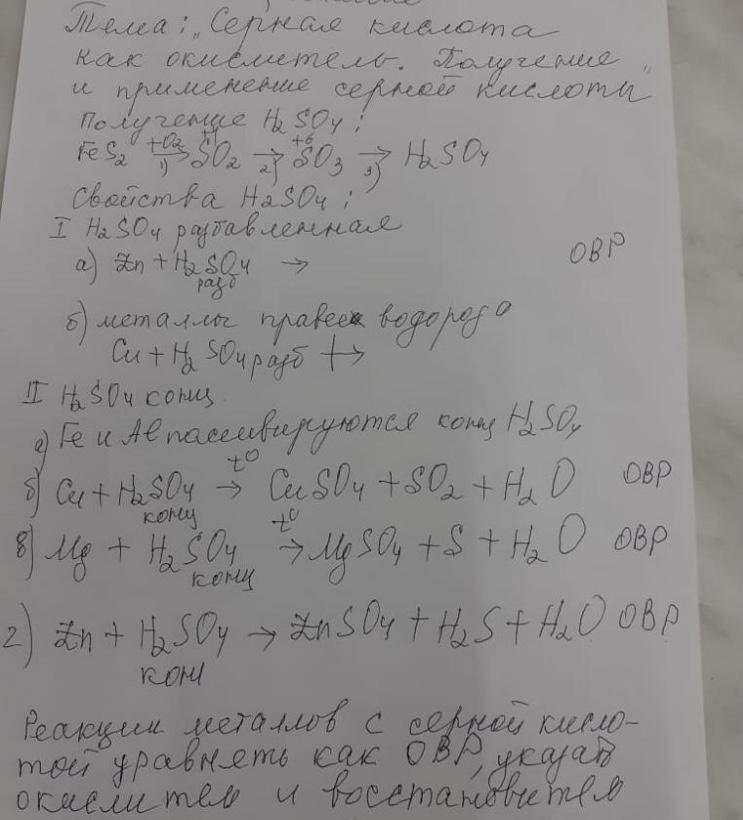 Тема: „Серная кислота
как окислитель. Получение
и применение серной кислоты"
Получение H₂SO₄:
FeS₂ +O₂→ 1) +4 SO₂ → 2) +6 SO₃ → 3) H₂SO₄
Свойства H₂SO₄:
I H₂SO₄ разбавленная
а) Zn + H₂SO₄ разб → ОВР
б) металлы правее водорода
Cu + H₂SO₄ разб ⇸
II H₂SO₄ конц.
а) Fe и Al пассивируются конц H₂SO₄
б) Cu + H₂SO₄ конц t°→ CuSO₄ + SO₂ + H₂O ОВР
в) Mg + H₂SO₄ конц t°→ MgSO₄ + S + H₂O ОВР
г) Zn + H₂SO₄ конц → ZnSO₄ + H₂S + H₂O ОВР
Реакции металлов с серной кисло-
той уравнять как ОВР, указать
окислитель и восстановитель